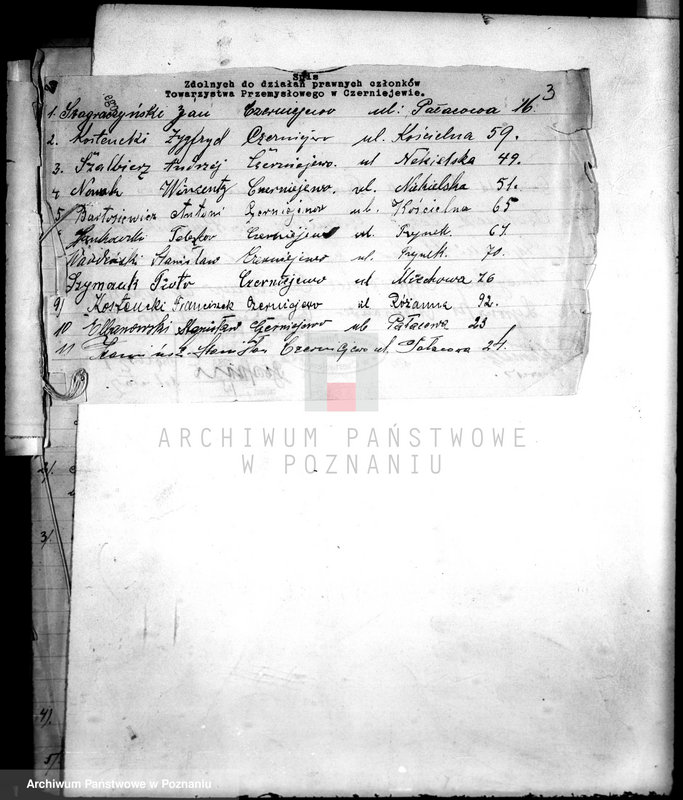 3
Spis
Zdolnych do działań prawnych członków
Towarzystwa Przemysłowego w Czerniejewie.
1. Jan Czerniejewo ul: Pałacowa 16.
2. Kostencki Zygfryd Czerniejewo ul. Kościelna 59.
3. Szalbierz Andrzej Czerniejewo. ul Nakielska 49.
4 Nowak Wincenty Czerniejewo. ul. Nakielska 51.
5 Bartosiewicz Antoni Czerniejewo ul. Kościelna 65
Czerniejewo ul. Rynek. 67.
Stanisław Czerniejewo ul. Rynek. 70.
Szymczak Piotr Czerniejewo ul Mickowa 76
9) Kostencki Franciszek Czerniejewo ul Różanna 92.
10 Elbanowski Stanisław Czerniejewo ul. Pałacowa 23
11 Stanisław Czerniejewo ul. Pałacowa 24.
ARCHIWUM PAŃSTWOWE
W POZNANIU
3).
4).
5).
Archiwum Państwowe w Poznaniu